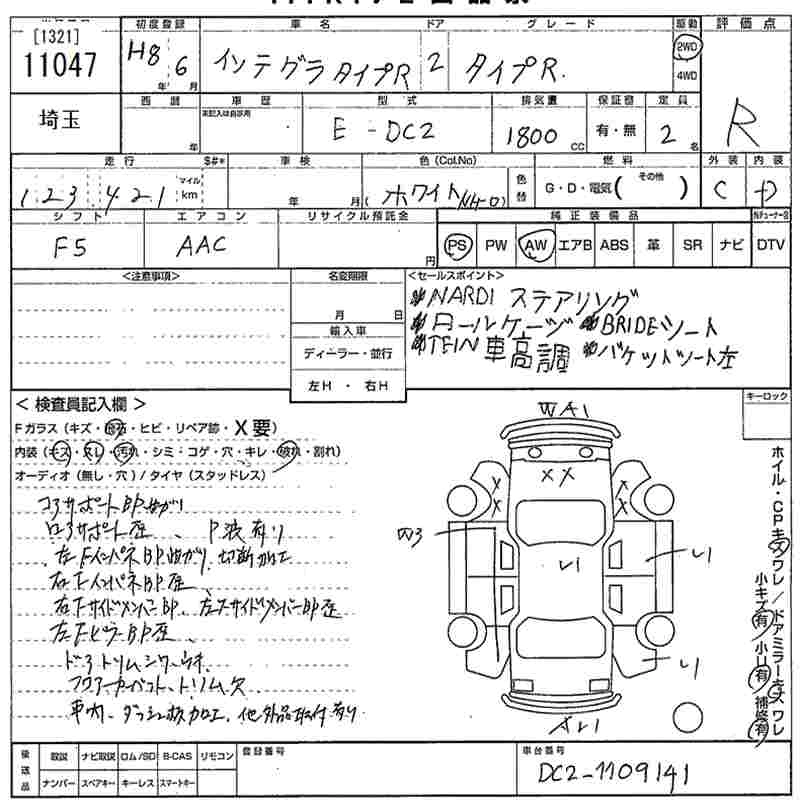 [1321]
11047
初度登録
H8 年 6 月
車名
インテグラ タイプR
ドア
2
グレード
タイプR.
駆動
2WD
4WD
評価点
R
埼玉
西暦
年
車歴
未記入は自家用
型式
E-DC2
排気量
1800 CC
保証書
有・無
定員
2 名
走行
123,421
マイル
km
S#*
車検
年 月
色(Col.No)
(ホワイト NH-0)
色替
燃料
G・D・電気( その他 )
外装
C
内装
D
シフト
F5
エアコン
AAC
リサイクル預託金
円
純正装備品
PS PW AW エアB ABS 革 SR ナビ DTV
<注意事項>
名変期限
月 日
輸入車
ディーラー・並行
左H ・ 右H
<セールスポイント>
NARDI ステアリング
ロールケージ BRIDEシート
TEIN 車高調 バケットシート左
キーロック
<検査員記入欄>
Fガラス(キズ・飛石・ヒビ・リペア跡・X要)
内装(キズ・スレ・汚れ・シミ・コゲ・穴・キレ・破れ・割れ)
オーディオ(無し・穴)/タイヤ(スタッドレス)
コアサポートBP曲がり
ロアサポート歪、P波有り
左FインパネBP曲がり 切断加工
右FインパネBP歪
右FサイドメンバーBP、左FサイドメンバーBP歪
左FピラーBP歪
ドアトリムシワ・ウキ
フロアーカーペット、トリム欠
車内、ダッシュ板加工、他外品取付有り
WA1
XX
A21
ホイル・CPキズワレ/ドアミラーキズワレ
小キズ有 小U有 補修有
後送品
取説 ナビ取説 ロム/SD B-CAS リモコン
ナンバー スペアキー キーレス スマートキー
登録番号
車台番号
DC2-1109141